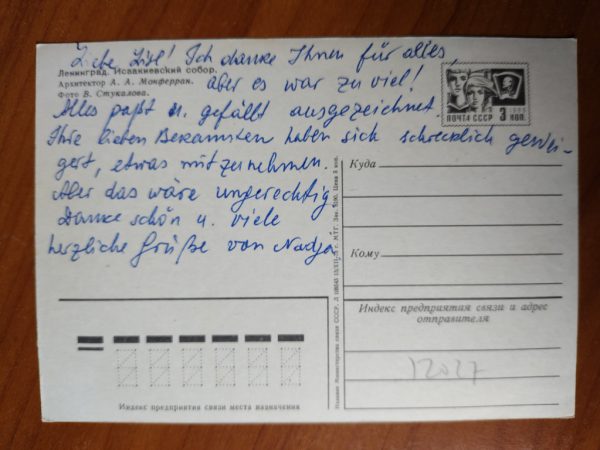 Liebe Lisl! Ich danke Ihnen für alles,
Ленинград. Исаакиевский собор.
Архитектор А. А. Монферран.
Фото В. Стукалова.
aber es war zu viel!
Alles paßt u. gefällt ausgezeichnet.
Ihre lieben Bekannten haben sich schrecklich gewei-
gert, etwas mitzunehmen.
Aber das wäre ungerechtig.
Danke schön u. viele
herzliche Grüße von Nadja.
ПОЧТА СССР 3 КОП.
Куда
Кому
Индекс предприятия связи и адрес
отправителя
12027
Индекс предприятия связи места назначения